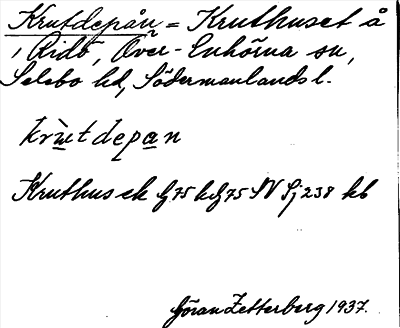 Krutdepån = Kruthuset å
, Ridö, Över-Enhörna sn,
Selebo hd, Södermanlands l.
krùtdepan
Kruthus ek G75 hdg75 SV Sj 238 hb
Göran Zetterberg 1937.